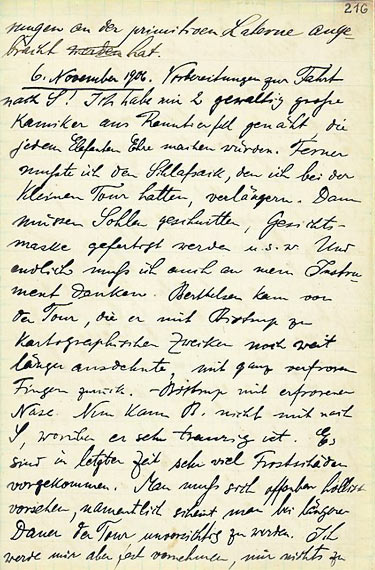 216
nungen an der primitiven Laterne ange-
bracht hat.
6. November 1906. Vorbereitungen zur Fahrt
nach S! Ich habe mir 2 gewaltig große
Kamiker aus Renntierfell genäht die
jedem Elefanten Ehre machen würden. Ferner
mußte ich den Schlafsack, den ich bei der
kleinen Tour hatten, verlängern. Dann
müssen Sohlen geschnitten, Gesichts-
maske gefertigt werden u.s.w. Und
endlich muß ich auch an mein Instru-
ment denken. Bertelsen kam von
der Tour, die er mit Bistrup zu
kartographischen Zwecken noch weit
länger ausdehnte, mit ganz erfrorenen
Fingern zurück. - Bistrup mit erfrorener
Nase. Nun kann B. nicht mit nach
S, worüber er sehr traurig ist. Es
sind in letzter Zeit sehr viel Frostschäden
vorgekommen. Man muß sich offenbar höllisch
vorsehen, namentlich scheint man bei längerer
Dauer der Tour unvorsichtig zu werden. Ich
werde mir aber fest vornehmen, mir nichts zu